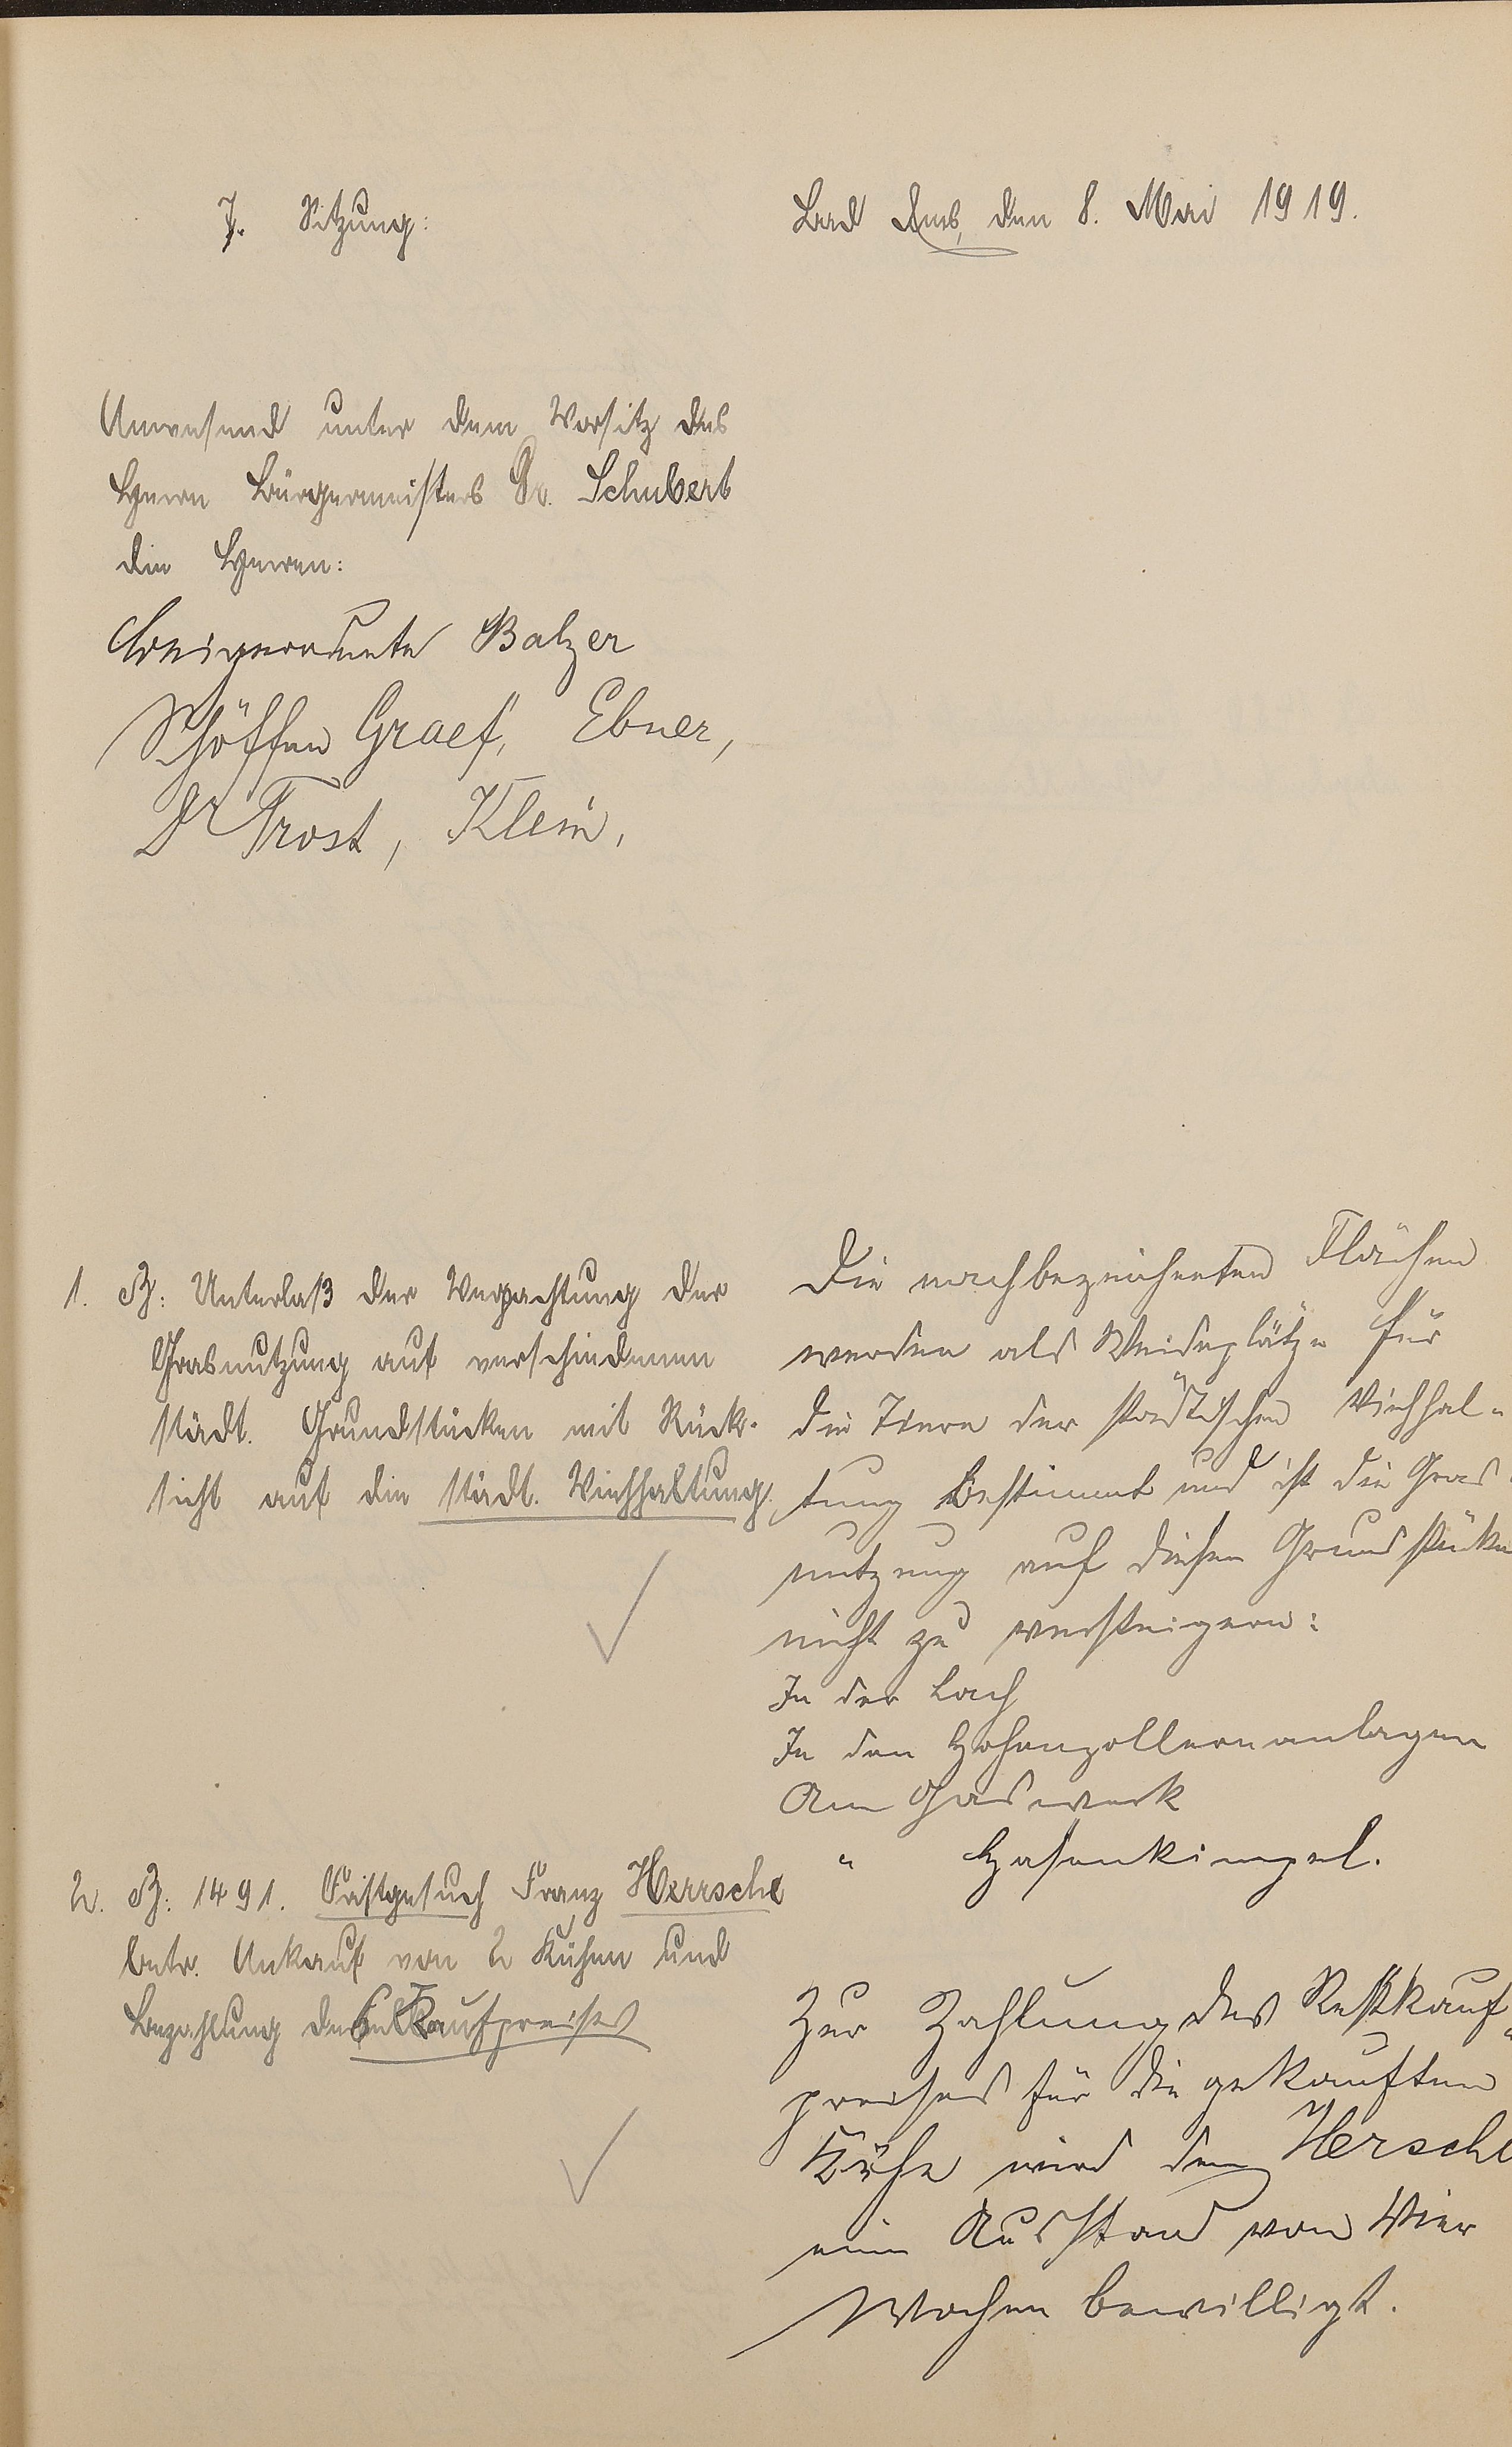 7. Sitzung:
Bad Ems, den 8. Mai 1919.
Anwesend unter dem Vorsitz des
Herrn Bürgermeisters Dr. Schubert
die Herren:
Beigeordnete Balzer
Schöffen Graef, Ebner,
Dr Trost, Klein,
1. B: Unterlaß der Verpachtung der
Grasnutzung auf verschiedenen
städt. Grundstücken mit Rück-
sicht auf die städt. Viehhaltung.
Die nachbezeichneten Flächen
werden als Weideplätze für
die Tiere der städtischen Viehhal-
tung bestimmt und ist die Gras-
nutzung auf diesen Grundstücken
nicht zu versteigern:
In der Lach
In den Hohenzollernanlagen
Am Gaswerk
" Hasenkümpel.
2. B: 1491. Fristgesuch Franz Herrsche
betr. Ankauf von 2 Kühen und
Bezahlung des Kaufpreises
Zur Zahlung des Restkauf-
preises für die gekauften
Kühe wird dem Hersche
ein Ausstand von Vier
Wochen bewilligt.